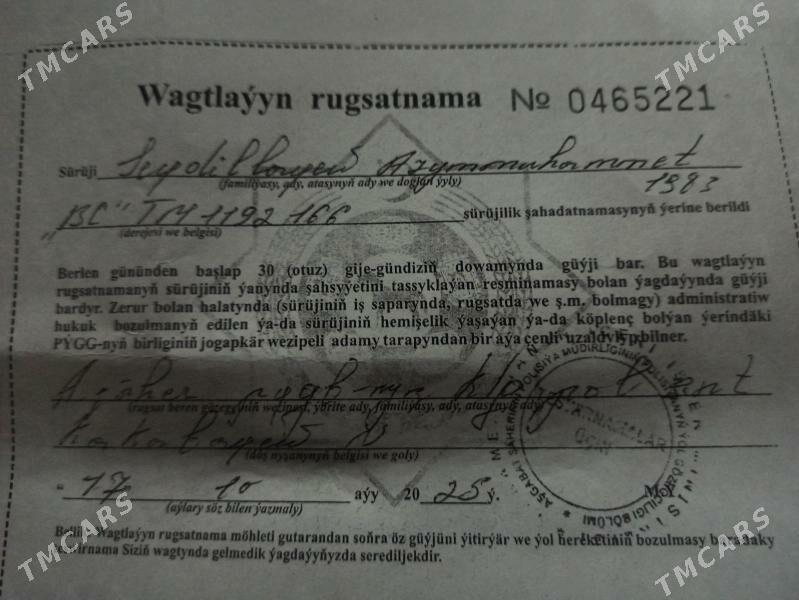 TMCARS
TMCARS
TMCARS
Wagtlaýyn rugsatnama № 0465221
Sürüji
(familiýasy, ady, atasynyň ady we doglan ýyly) 1983
"BC" TM 1192 166 sürüjilik şahadatnamasynyň ýerine berildi
(derejesi we belgisi)
Berlen gününden başlap 30 (otuz) gije-gündiziň dowamynda güýji bar. Bu wagtlaýyn
rugsatnamanyň sürüjiniň ýanynda şahsyýetini tassyklaýan resminamasy bolan ýagdaýynda güýji
bardyr. Zerur bolan halatynda (sürüjiniň iş saparynda, rugsatda we ş.m. bolmagy) administratiw
hukuk bozulmanyň edilen ýa-da sürüjiniň hemişelik ýaşaýan ýa-da köplenç bolýan ýerindäki
PÝGG-nyň birliginiň jogapkär wezipeli adamy tarapyndan bir aýa çenli uzaldylyp bilner.
(rugsat beren gözegçiniň wezipesi, ýörite ady, familiýasy, ady, atasynyň ady)
(döş nyşanynyň belgisi we goly)
" 17 10 aýy 20 25 ý. M.Ý.
(aýlary söz bilen ýazmaly)
AŞGABAT ŞÄHERINIŇ POLISIÝA MÜDIRLIGINIŇ
Wagtlaýyn rugsatnama möhleti gutarandan soňra öz güýjüni ýitirýär we ýol hereketiniň bozulmasy baradaky
Siziň wagtynda gelmedik ýagdaýyňyzda serediljekdir.
TMCARS
TMCARS